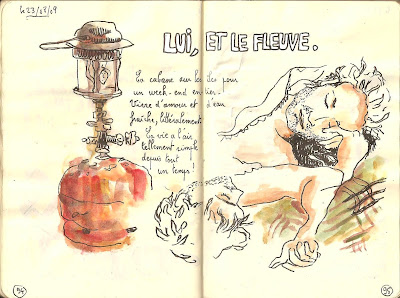 LUI, ET LE FLEUVE.
La cabane sur pour
un week-end entier.
Vivre d'amour et d'eau
fraîche, littéralement.
La vie a l'air
tellement simple
depuis tout
un temps!
94
95